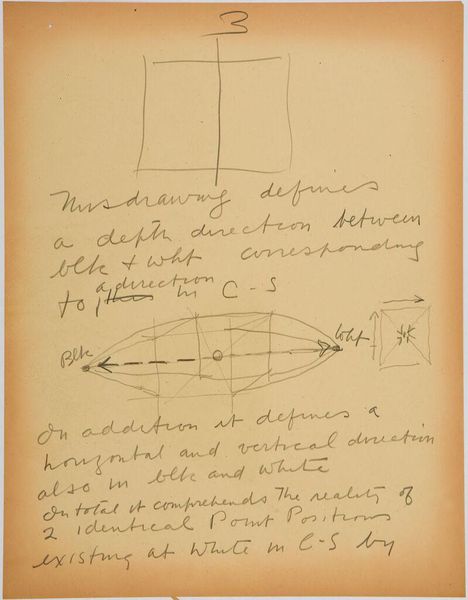 3
This drawing defines
a depth direction between
blk + wht corresponding
to a direction in C-S
Blk
Wht
In addition it defines a
horizontal and vertical direction
also in blk and white
In total it comprehends The reality of
2 identical Point Positions
existing at White in C-S by